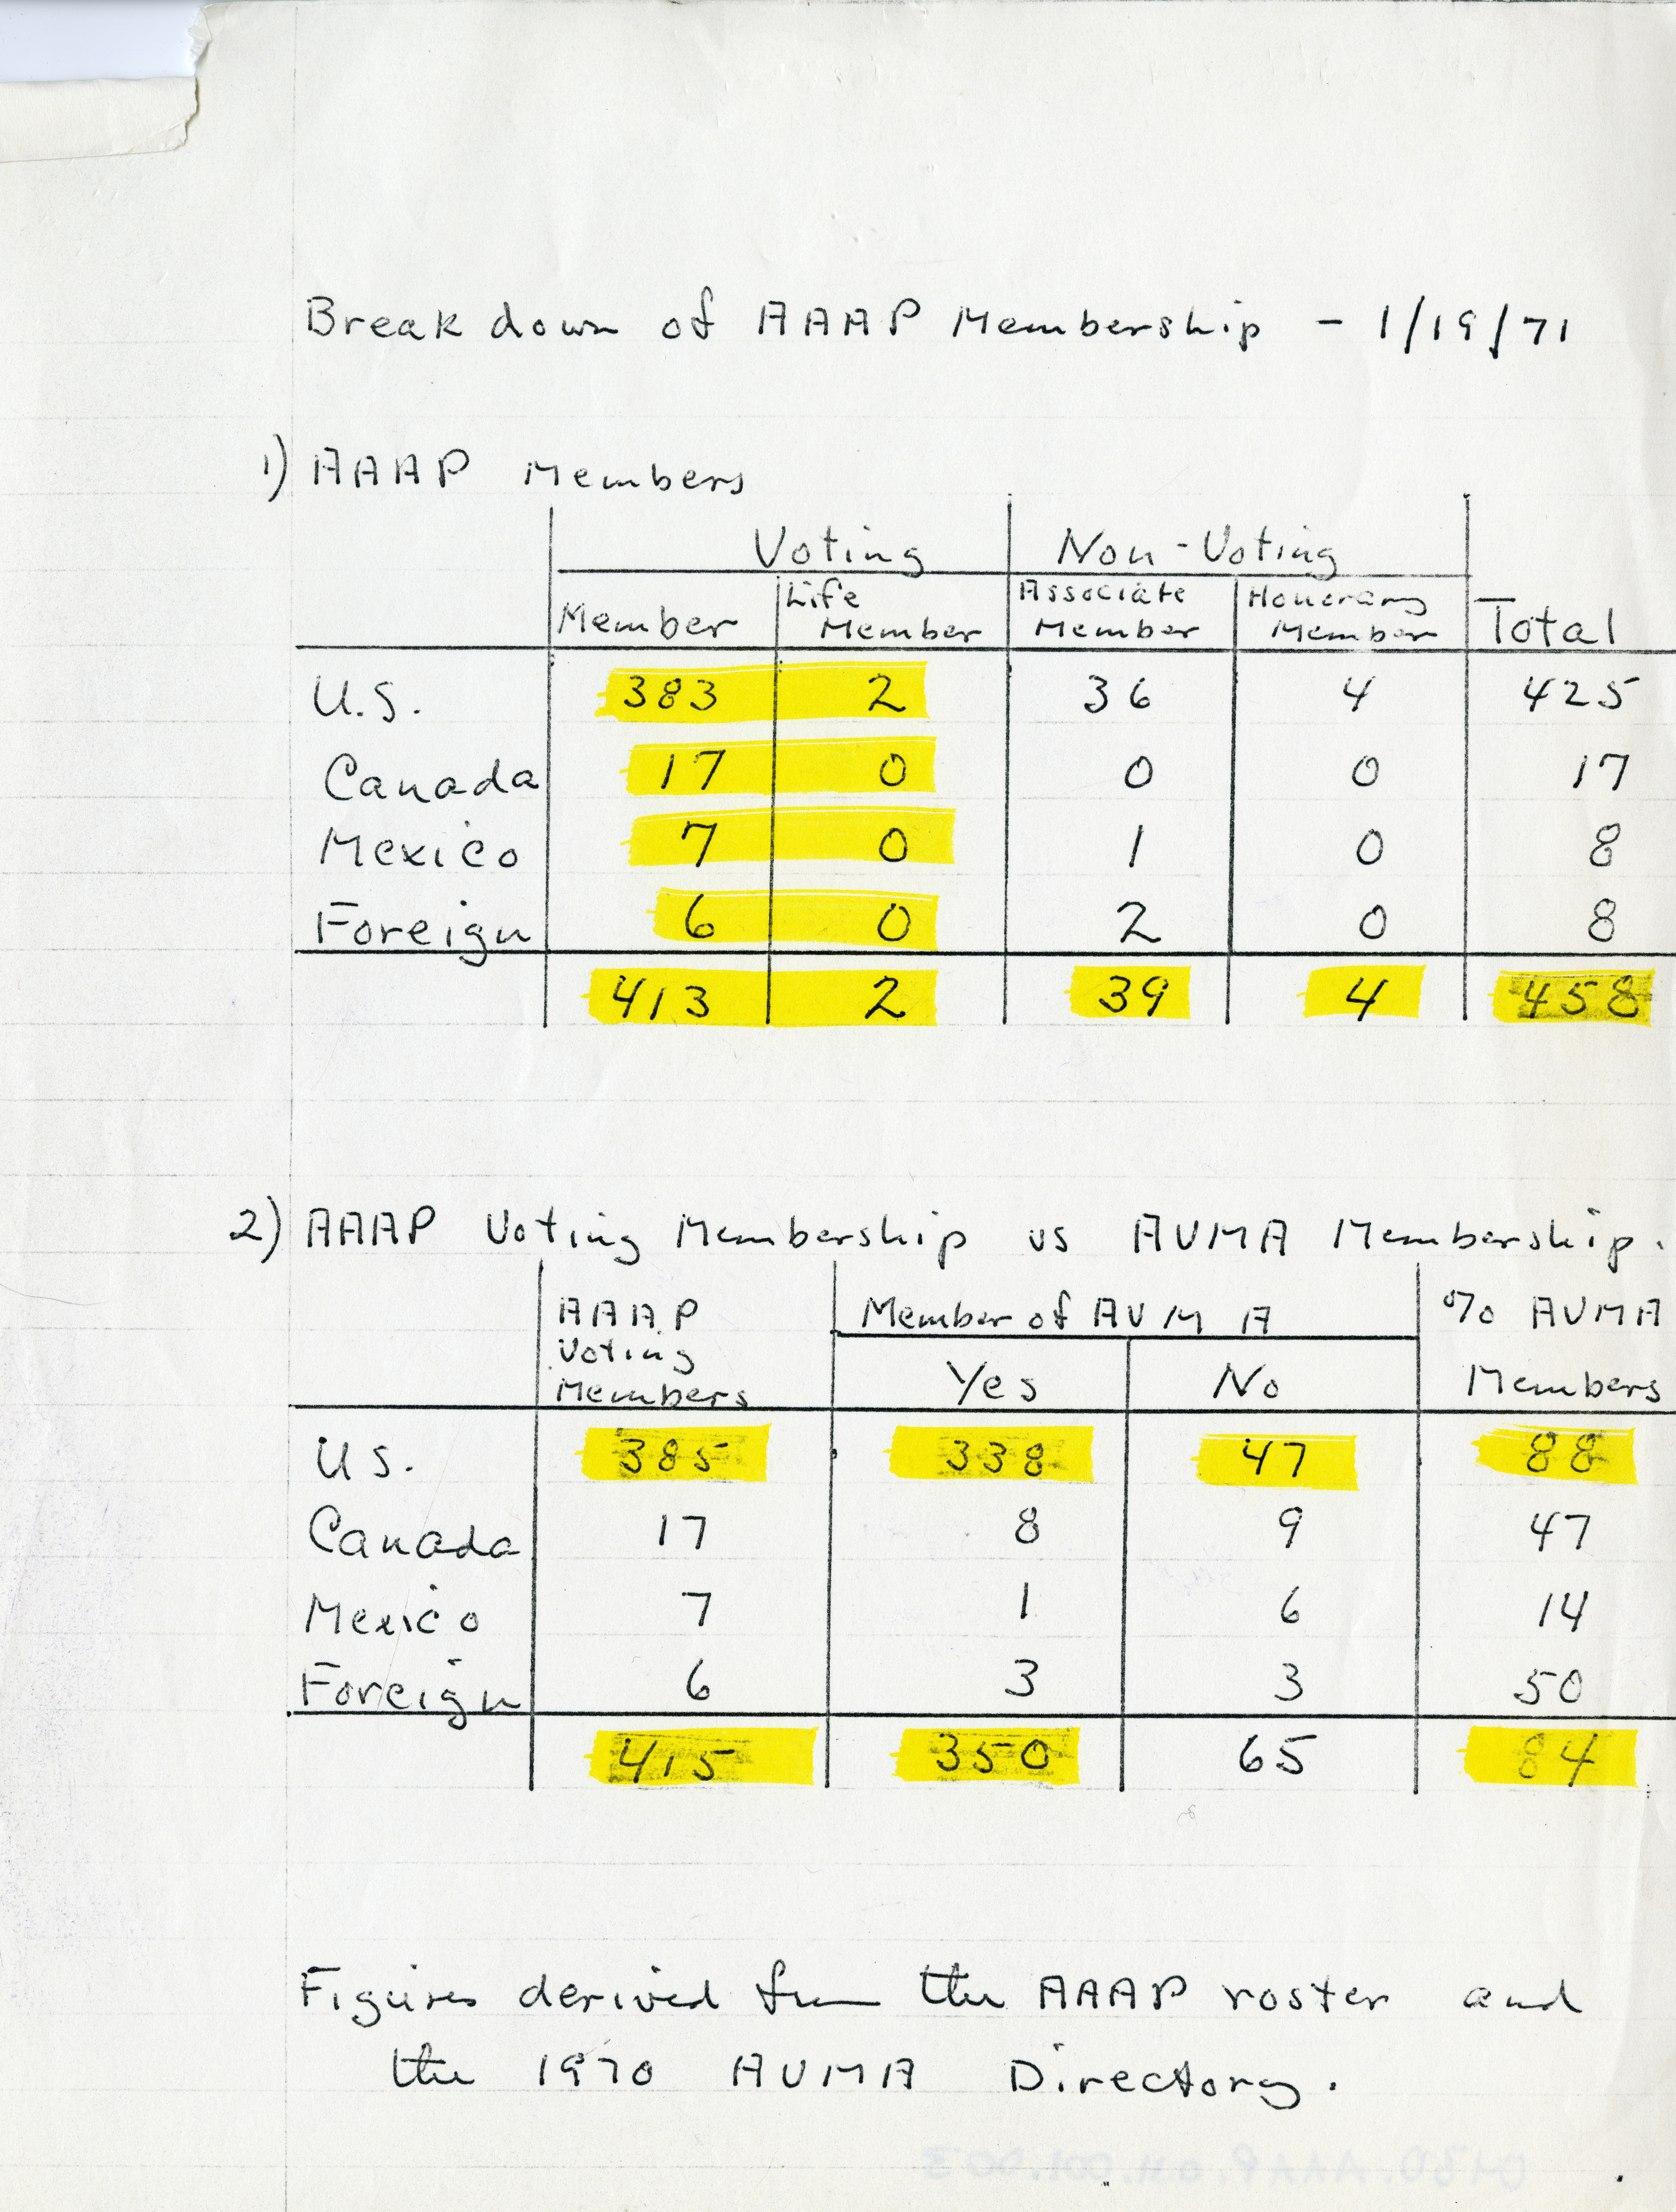 Breakdown of AAAP Membership - 1/19/71
1) AAAP Members
Voting Non-Voting
Member Life Member Associate Member Honorary Member Total
U.S. 383 2 36 4 425
Canada 17 0 0 0 17
Mexico 7 0 1 0 8
Foreign 6 0 2 0 8
413 2 39 4 458
2) AAAP Voting Membership vs AVMA Membership.
AAAP Voting Members Member of AVMA % AVMA Members
Yes No
US. 385 338 47 88
Canada 17 8 9 47
Mexico 7 1 6 14
Foreign 6 3 3 50
415 350 65 84
Figures derived from the AAAP roster and
the 1970 AVMA Directory.